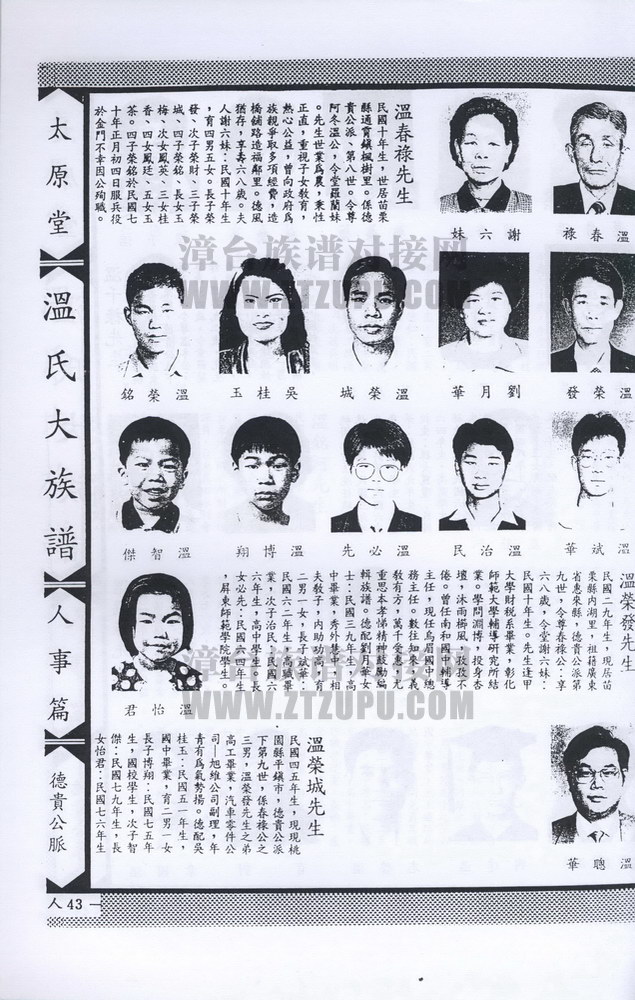 溫春祿先生
民國十年生，世居苗栗
縣通霄鎮楓樹里。係德
貴公派、第八世。令尊
阿冬溫公，令堂羅蘭妹
。先生世業為農，秉性
正直，重視子女教育，
熱心公益，曾向政府為
族親爭取多項經費，造
橋鋪路造福鄰里。德風
猶存，享壽六八歲。夫
人謝六妹：民國十年生
，育四男五女。長子榮
發、次子榮財、三子榮
城、四子榮銘、長女玉
梅、次女鳳英、三女桂
香、四女鳳廷、五女玉
茶。四子榮銘於民國七
十年正月初四日服兵役
於金門不幸因公殉職。
妹六謝
祿春溫
銘榮溫
玉桂吳
城榮溫
華月劉
發榮溫
傑智溫
翔博溫
先必溫
民治溫
華斌溫
君怡溫
溫榮發先生
民國二九年生，現居苗
栗縣內湖里，祖籍廣東
省惠來縣，德貴公派第
九世，令尊春祿公：享
六八歲，令堂謝六妹：
民國十年生。先生逢甲
大學財稅系畢業，彰化
師範大學輔導研究所結
業。學問淵博，投身杏
壇，沐雨櫛風，孜孜不
倦。曾任南和國中輔導
主任，現任烏眉國中總
務主任。數往知來，義
教有方，萬千受惠，尤
重思本孝悌精神鼓勵編
輯族譜。德配劉月華女
士：民國三九年生，高
中畢業，秀外慧中，相
夫教子，內助功高。育
二男一女，長子斌華：
民國六二年生，高職畢
業，次子治民：民國六
六年生，高中學生。長
女必先：民國六四年生
，屏東師範學院學生。
溫榮城先生
民國四五年生，現現桃
園縣平鎮市，德貴公派
下第九世，係春祿公之
三男，溫榮發先生之弟
高工畢業，汽車零件公
司—旭維公司副理，年
青有為氣勢揚。德配吳
桂玉：民國五一年生，
國中畢業，育二男一女
長子博翔：民國七五年
生，國校學生，次子智
傑：民國七九年生，長
女怡君：民國七六年生
華聰溫
太原堂
溫氏大族譜
人事篇
德貴公脈
人43
漳台族谱对接网
WWW.ZTZUPU.COM
漳台族谱对接网
WWW.ZTZUPU.COM